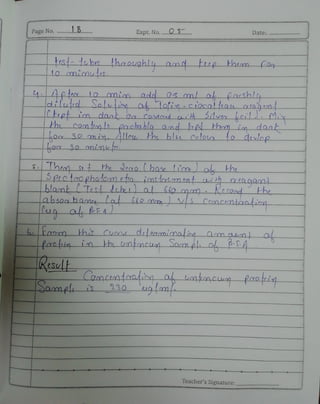 Page No. 18 Expt. No. 05 Date:
test-tube throughly and keep them for
10 minute.
4. After 10 min add 0.5 ml of freshly
diluted Solution of Folin-ciocalteau reagent
(kept in dark or covered with Silver foil). Mix
the contents and kept them in dark
for 30 min. Allow the blue colour to
for 30 minute.
5. Then at the Zero (base line) of the
Spectrophotometer instrument with reagent
blank (Test tube 1) at 660 nm. Record the
absorbance (at 660 nm) v/s concentration
(ug of BSA)
6. From this curve determinating amount of
protein in the unknown Sample of BSA
Result
Concentration of unknown protein
Sample is 330 ug/ml.
Teacher's Signature: